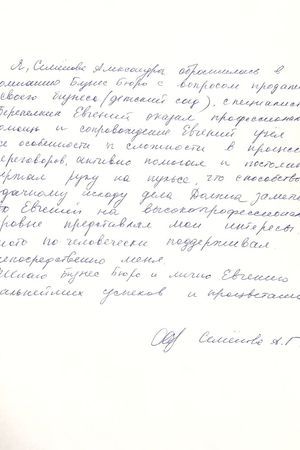 Я, Семёнова Александра обратилась в
омпанию Бизнес Бюро с вопросом продажи
своего бизнеса (детский сад), специалист
Перепелкин Евгений оказал профессионал
омощь и сопровождение Евгений учел
се особенности и сложности в процесс
ереговоров, активно помогал и постоянн
ержал руку на пульсе, что способствов
дачному исходу дела Должна замети
то Евгений на высокопрофессионал
ровне представлял мои интересы
ного по человечески поддерживал
непосредственно меня.
Бизнес Бюро и лично Евгению
альнейших успехов и процветани
Семёнова А.Г